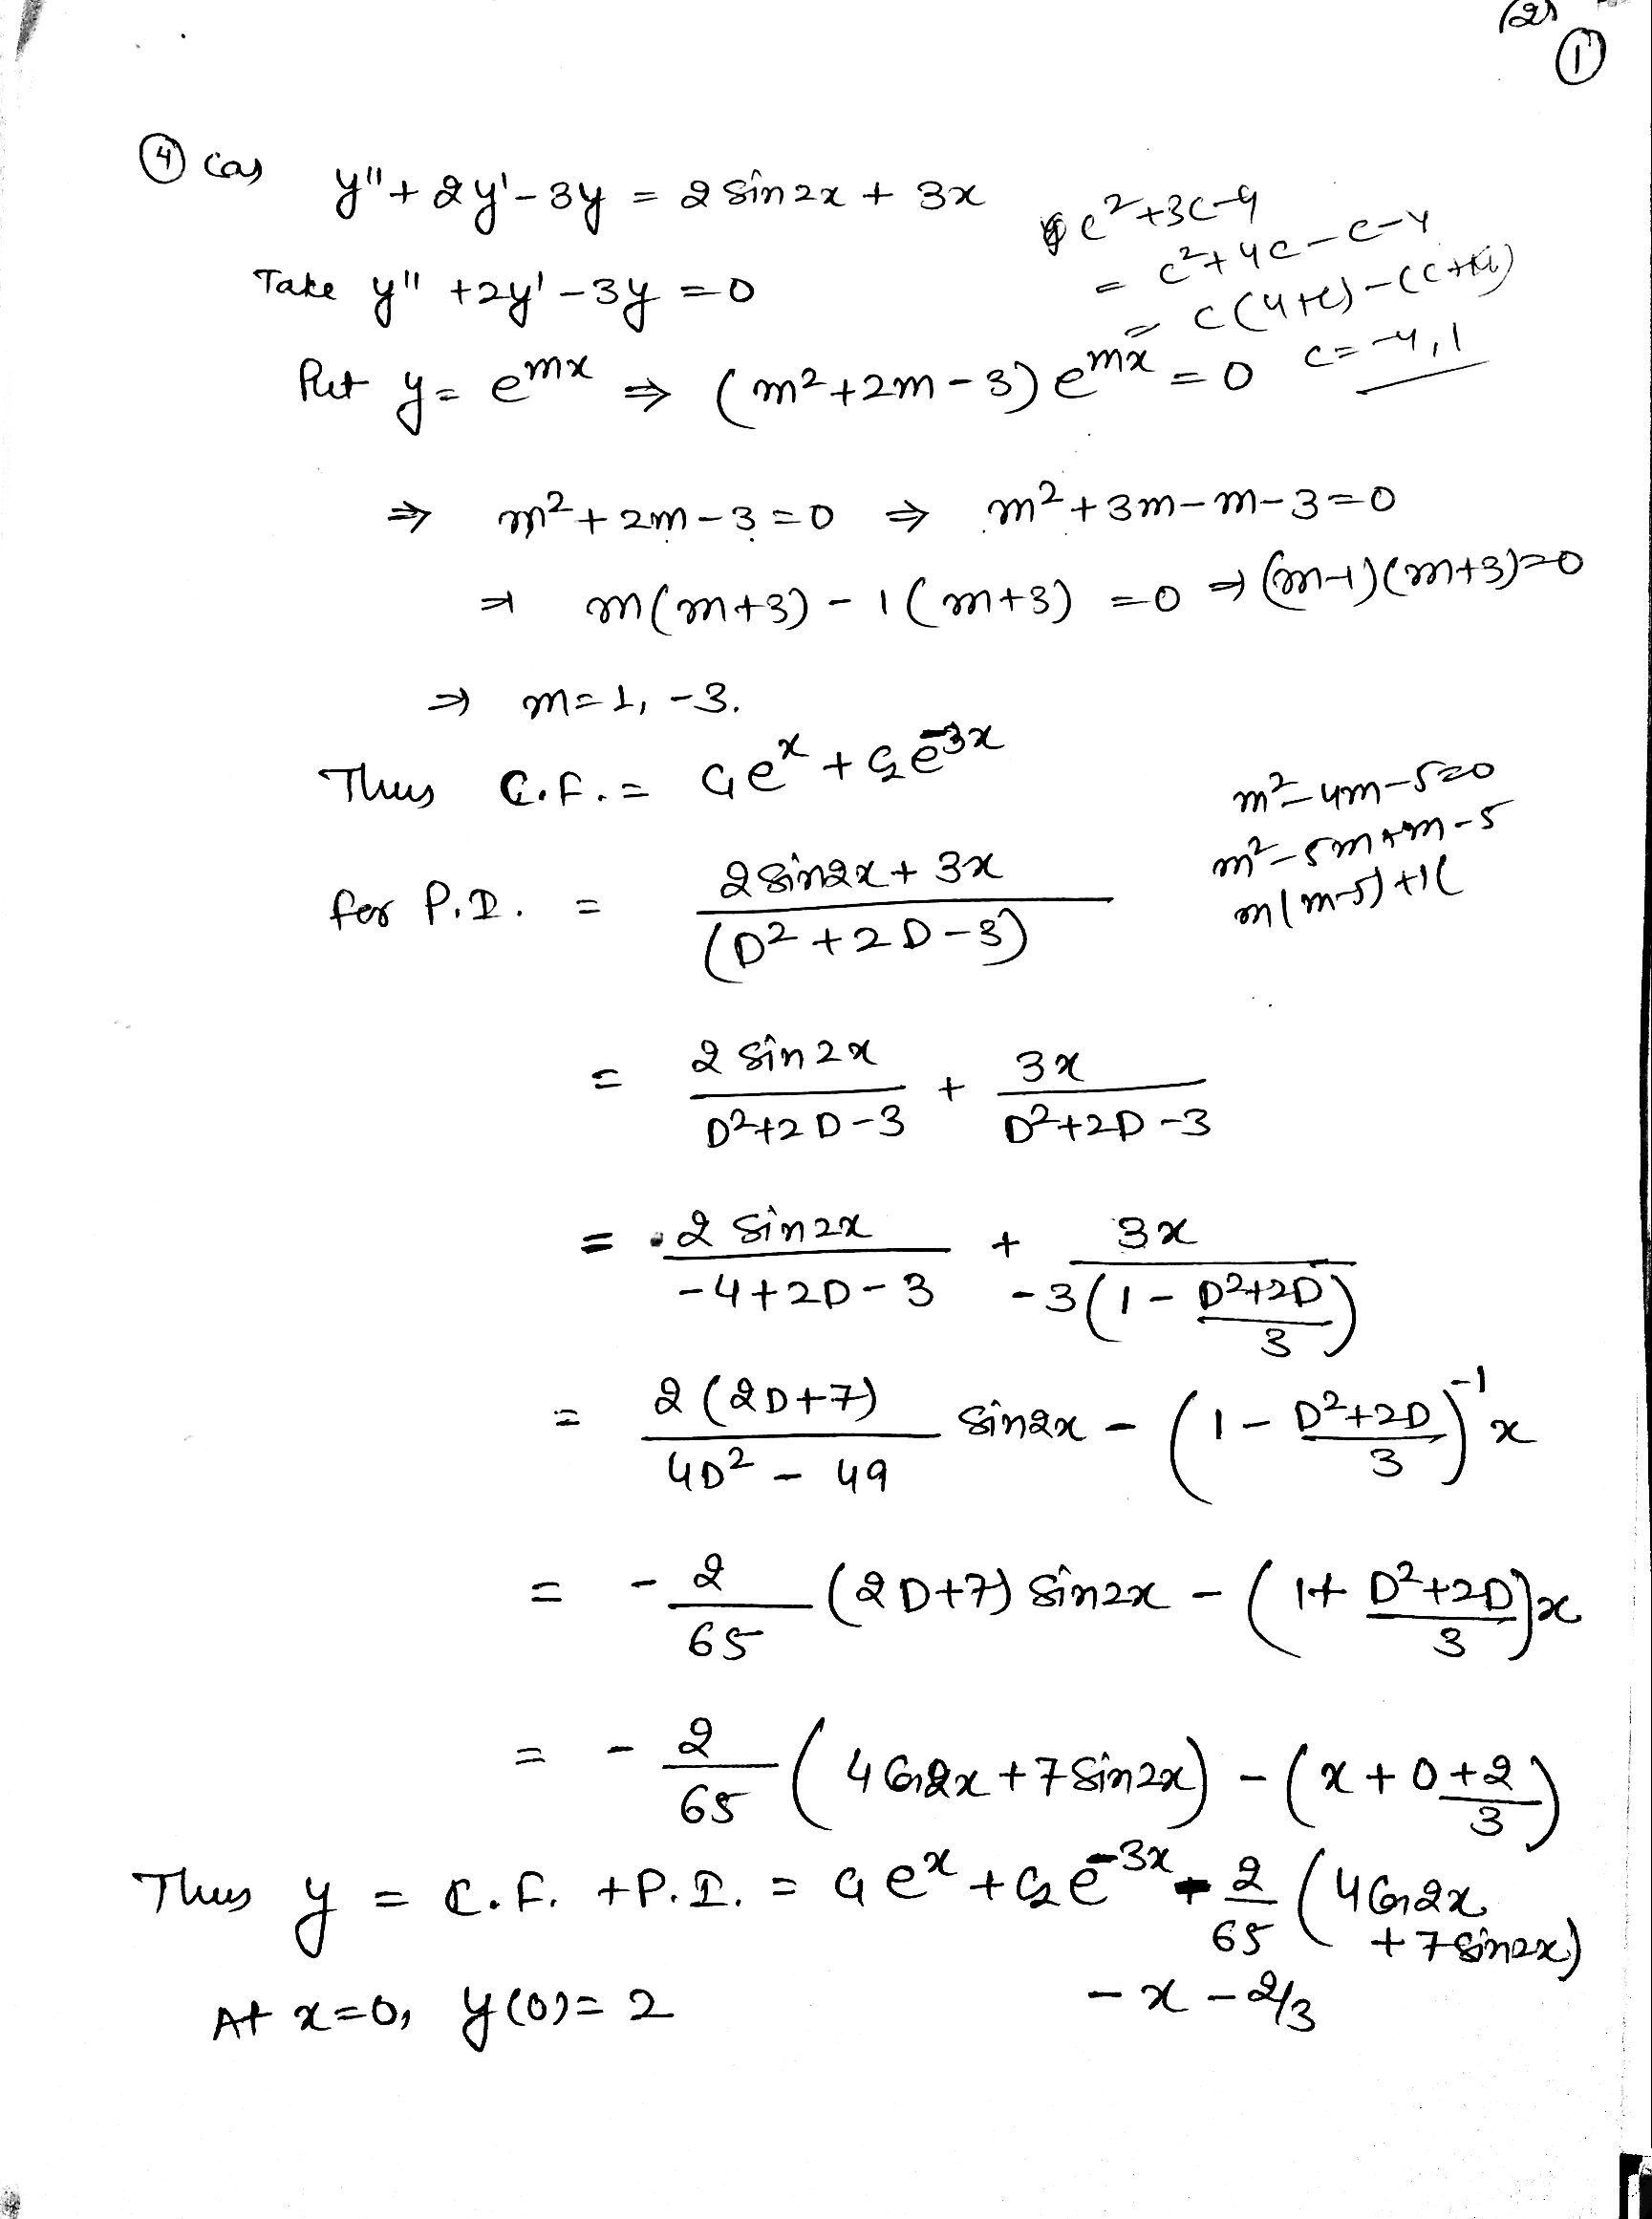 (2)
①
④ (a) y'' + 2y' - 3y = 2 sin2x + 3x
c²+3c-4
= c²+4c-c-4
= c(4+c)-(c+4)
c=-4,1
Take y'' +2y' -3y =0
Put y = e^{mx} ⇒ (m²+2m-3) e^{mx} = 0
⇒ m²+2m-3=0 ⇒ m²+3m-m-3=0
⇒ m(m+3) - 1(m+3) =0 ⇒ (m-1)(m+3)=0
⇒ m=1, -3.
Thus C.F. = C₁e^x + C₂e^{-3x}
m²-4m-5=0
m²-5m+m-5
m(m-5)+1(
for P.I. = (2 sin2x + 3x)/(D²+2D-3)
= 2 sin2x/(D²+2D-3) + 3x/(D²+2D-3)
= 2 sin2x/(-4+2D-3) + 3x/(-3(1 - (D²+2D)/3))
= 2(2D+7)/(4D² - 49) sin2x - (1 - (D²+2D)/3)^{-1} x
= - 2/65 (2D+7) sin2x - (1+ (D²+2D)/3)x
= - 2/65 (4 Cos2x + 7 Sin2x) - (x + 0+2/3)
Thus y = C.F. + P.I. = C₁e^x + C₂e^{-3x} - 2/65 (4 Cos2x
+ 7 sin2x)
- x - 2/3
At x=0, y(0)= 2